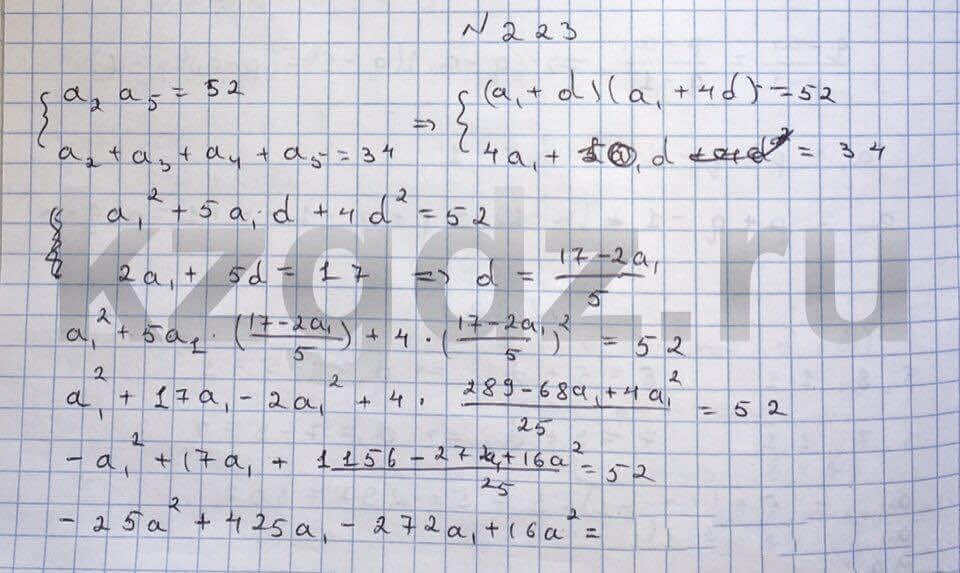 № 223
{ a₂ a₅ = 52 ⇒ { (a₁ + d)(a₁ + 4d) = 52
a₂ + a₃ + a₄ + a₅ = 34 4a₁ + d = 34
a₁² + 5a₁·d + 4d² = 52
2a₁ + 5d = 17 ⇒ d = (17 - 2a₁)/5
a₁² + 5a₁ · ((17 - 2a₁)/5) + 4 · ((17 - 2a₁)/5)² = 52
a₁² + 17a₁ - 2a₁² + 4 · (289 - 68a₁ + 4a₁²)/25 = 52
-a₁² + 17a₁ + (1156 - 272a₁ + 16a²)/25 = 52
-25a² + 425a₁ - 272a₁ + 16a² =
kzgdz.ru